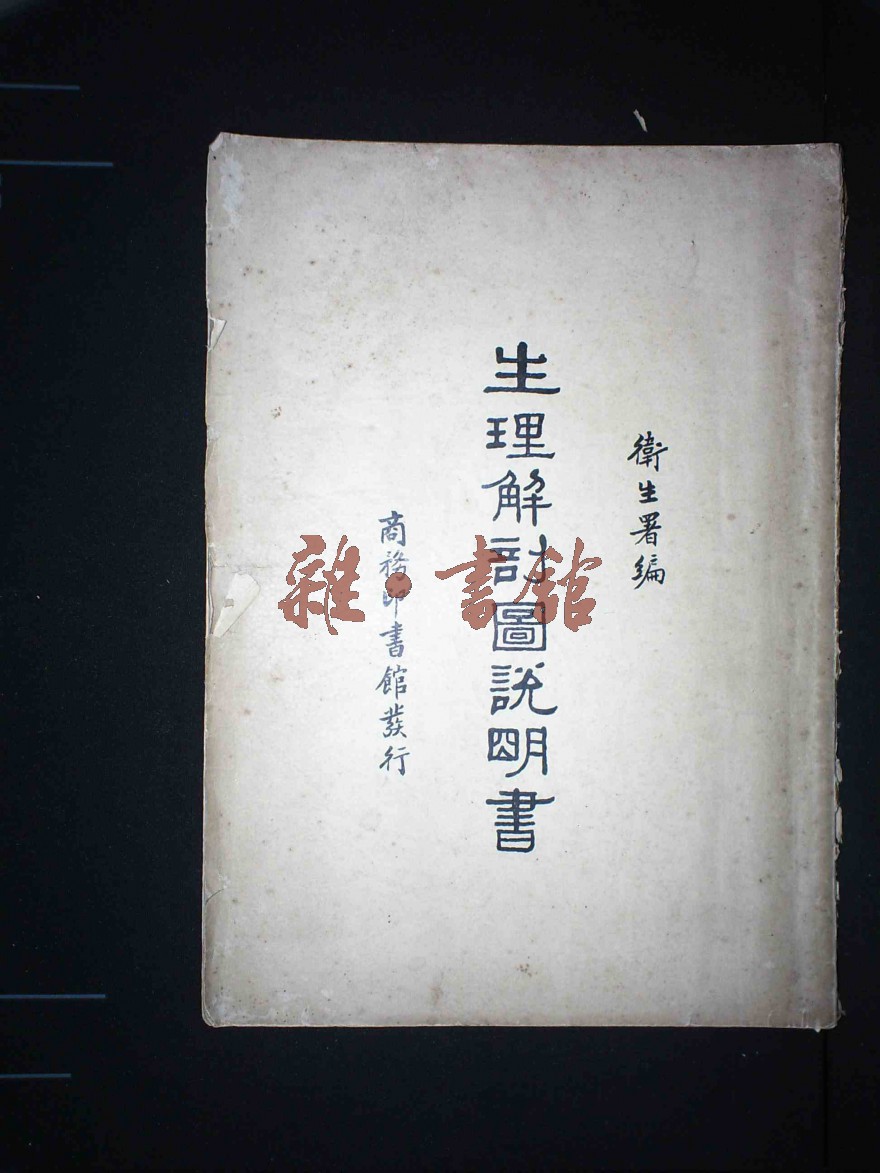 衛生署編
生理解剖圖說明書
商務印書館發行
雜·書館